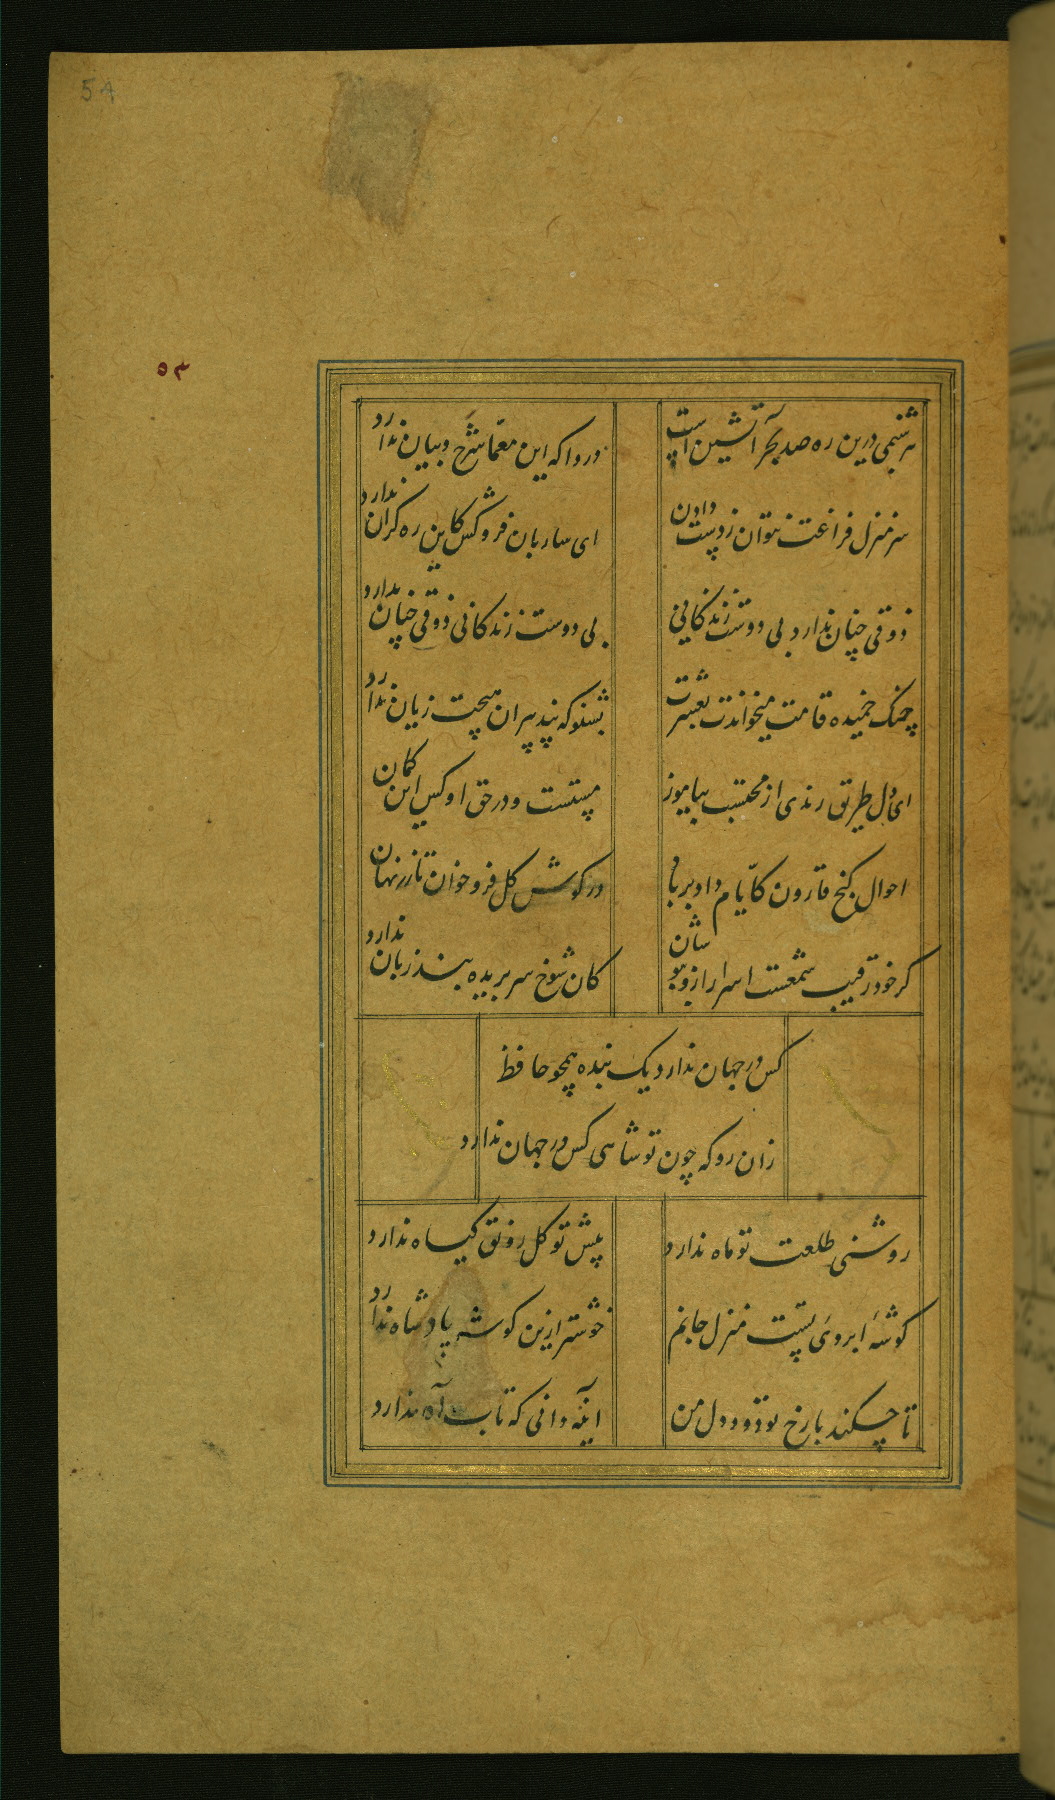 54
۵۳
هر شبنمی درین ره صد بحر آتشین است
دردا که این معمّا شرح و بیان ندارد
سر منزل فراغت نتوان ز دست دادن
ای ساربان فروکش کاین ره کران ندارد
ذوقی چنان ندارد بی دوست زندکانی
بی دوست زندکانی ذوقی چنان ندارد
چنک خمیده قامت میخواندت بعشرت
بشنو که پند پیران هیچت زیان ندارد
ای دل طریق رندی از محتسب بیاموز
مستست و در حق او کس این کمان ندارد
احوال کنج قارون کایّام داد بر باد
در کوش کل فرو خوان تا زر نهان
کر خود رقیب شمعست اسرار ازو بپوشان
کان شوخ سر بریده بند زبان ندارد
کس در جهان ندارد یک بنده همچو حافظ
زان رو که چون تو شاهی کس در جهان ندارد
روشنی طلعت تو ماه ندارد
پیش تو کل رونق کیاه ندارد
کوشهٔ ابروی تست منزل جانم
خوشتر ازین کوشه پادشاه ندارد
تا چکند با رخ تو دود دل من
اینه دانی که تاب آه ندارد